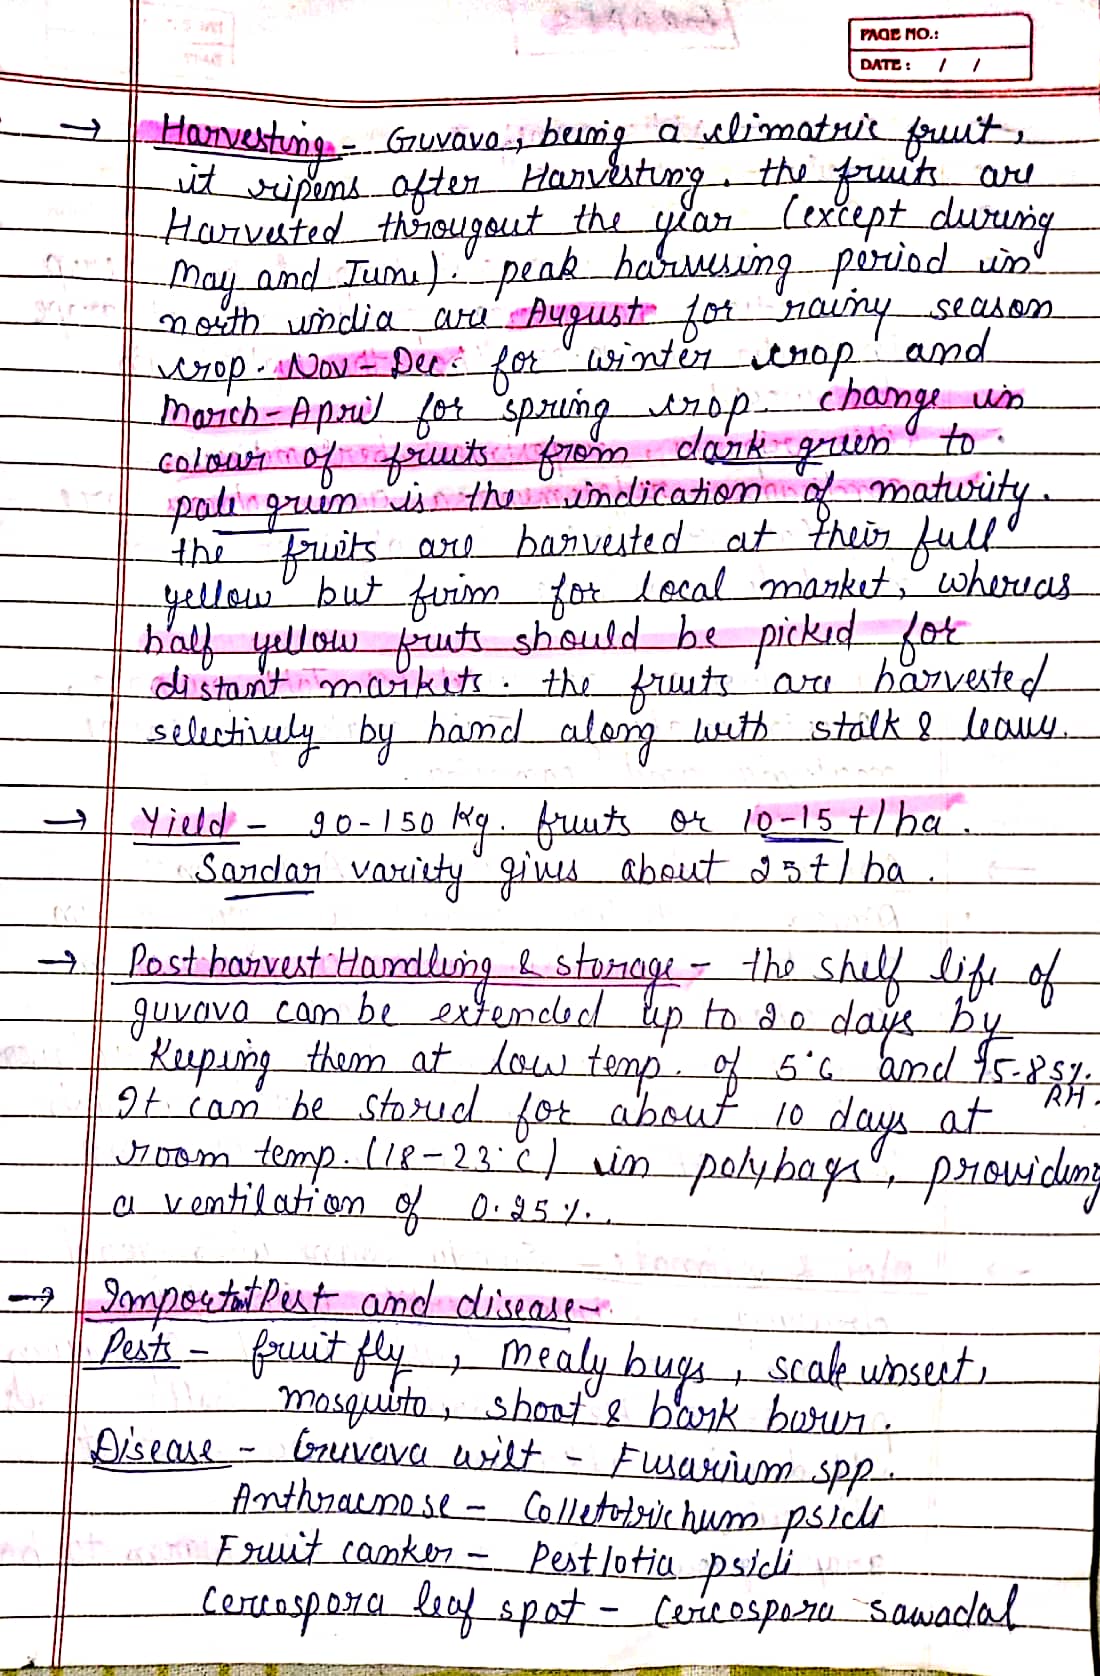 PAGE NO.:
DATE: / /
→ Harvesting - Guvava, being a climatric fruit,
it ripens after Harvesting. the fruits are
Harvested througout the year (except during
May and June). peak harvesing period in
north india are August for rainy season
crop. Nov - Dec. for winter crop and
March-April for spring crop. change in
colour of fruits from dark green to
pale green is the indication of maturity.
the fruits are harvested at their full
yellow but firm for local market, whereas
half yellow fruts should be picked for
distant markets. the fruits are harvested
selectively by hand along with stalk & leavy.
→ Yield - 90-150 Kg. fruits or 10-15 t/ha.
Sardar variety gives about 25t/ha.
→ Postharvest Handling & storage - the shelf life of
guvava can be extended up to 20 days by
Keeping them at low temp. of 5°C and 75-85%.
RH.
It can be stored for about 10 days at
room temp. (18-23°C) in polybags, providing
a ventilation of 0.25%.
→ Important Pest and disease-
Pests - fruit fly, mealy bugs, scale insect,
mosquito, shoot & bark borer.
Disease - Guvava wilt - Fusarium spp.
Anthracnose - Colletotrichum psidi
Fruit canker - Pestlotia psidi
Cercospora leaf spot - Cercospora sawadal